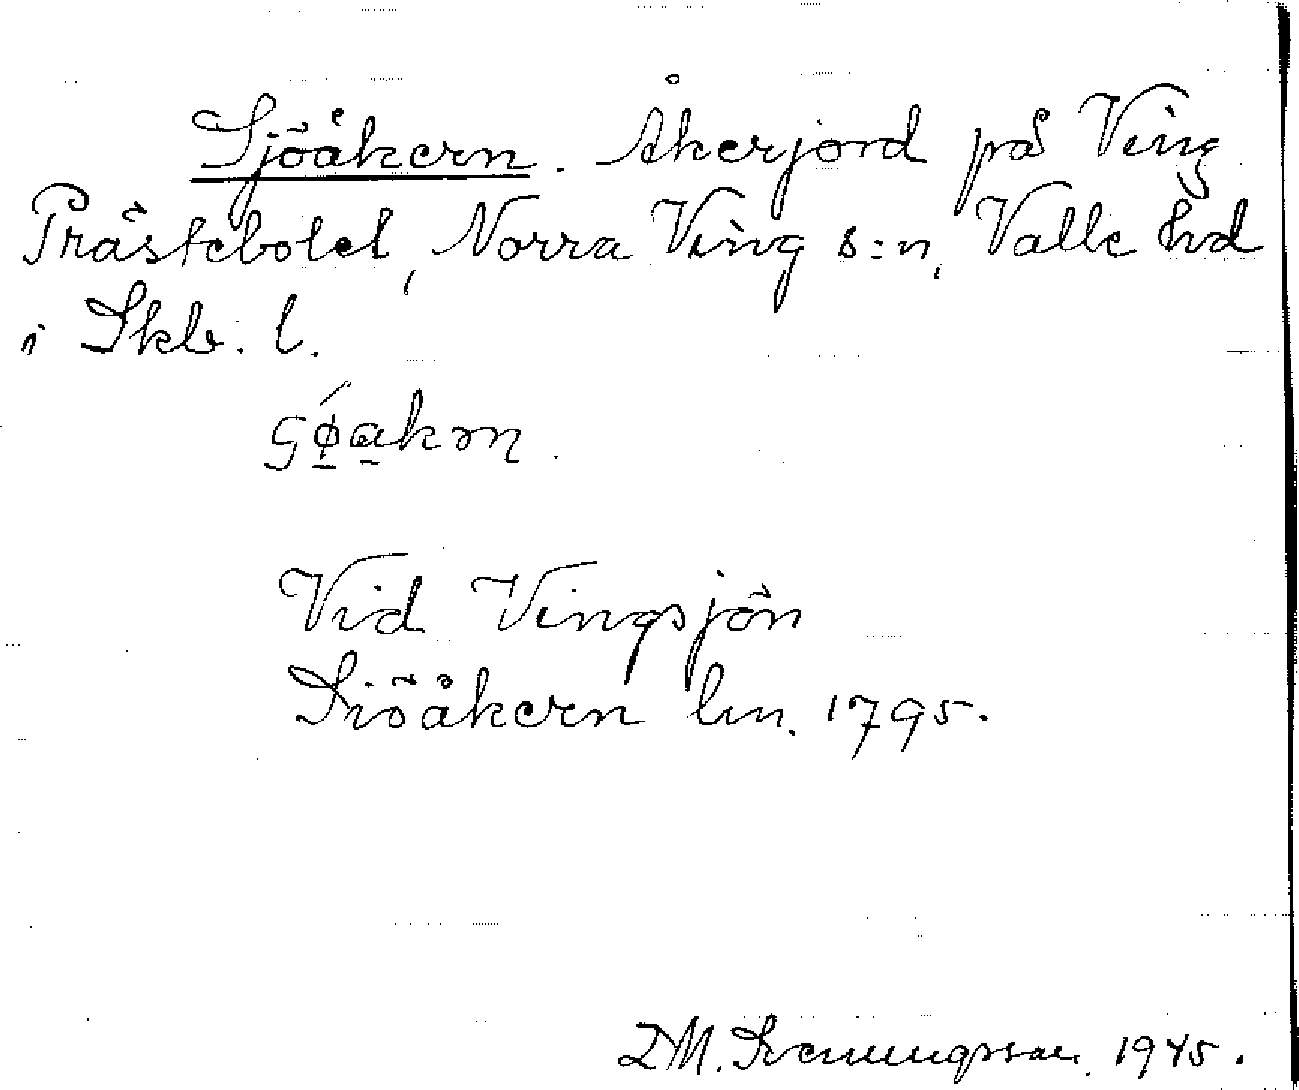 Sjöåkern. Åkerjord på Ving
Prästebolet, Norra Ving s:n, Valle hd
i Skb. l.
Vid Vingsjön
Siöåkern lm. 1795.
D.M. Svenungsson. 1945.